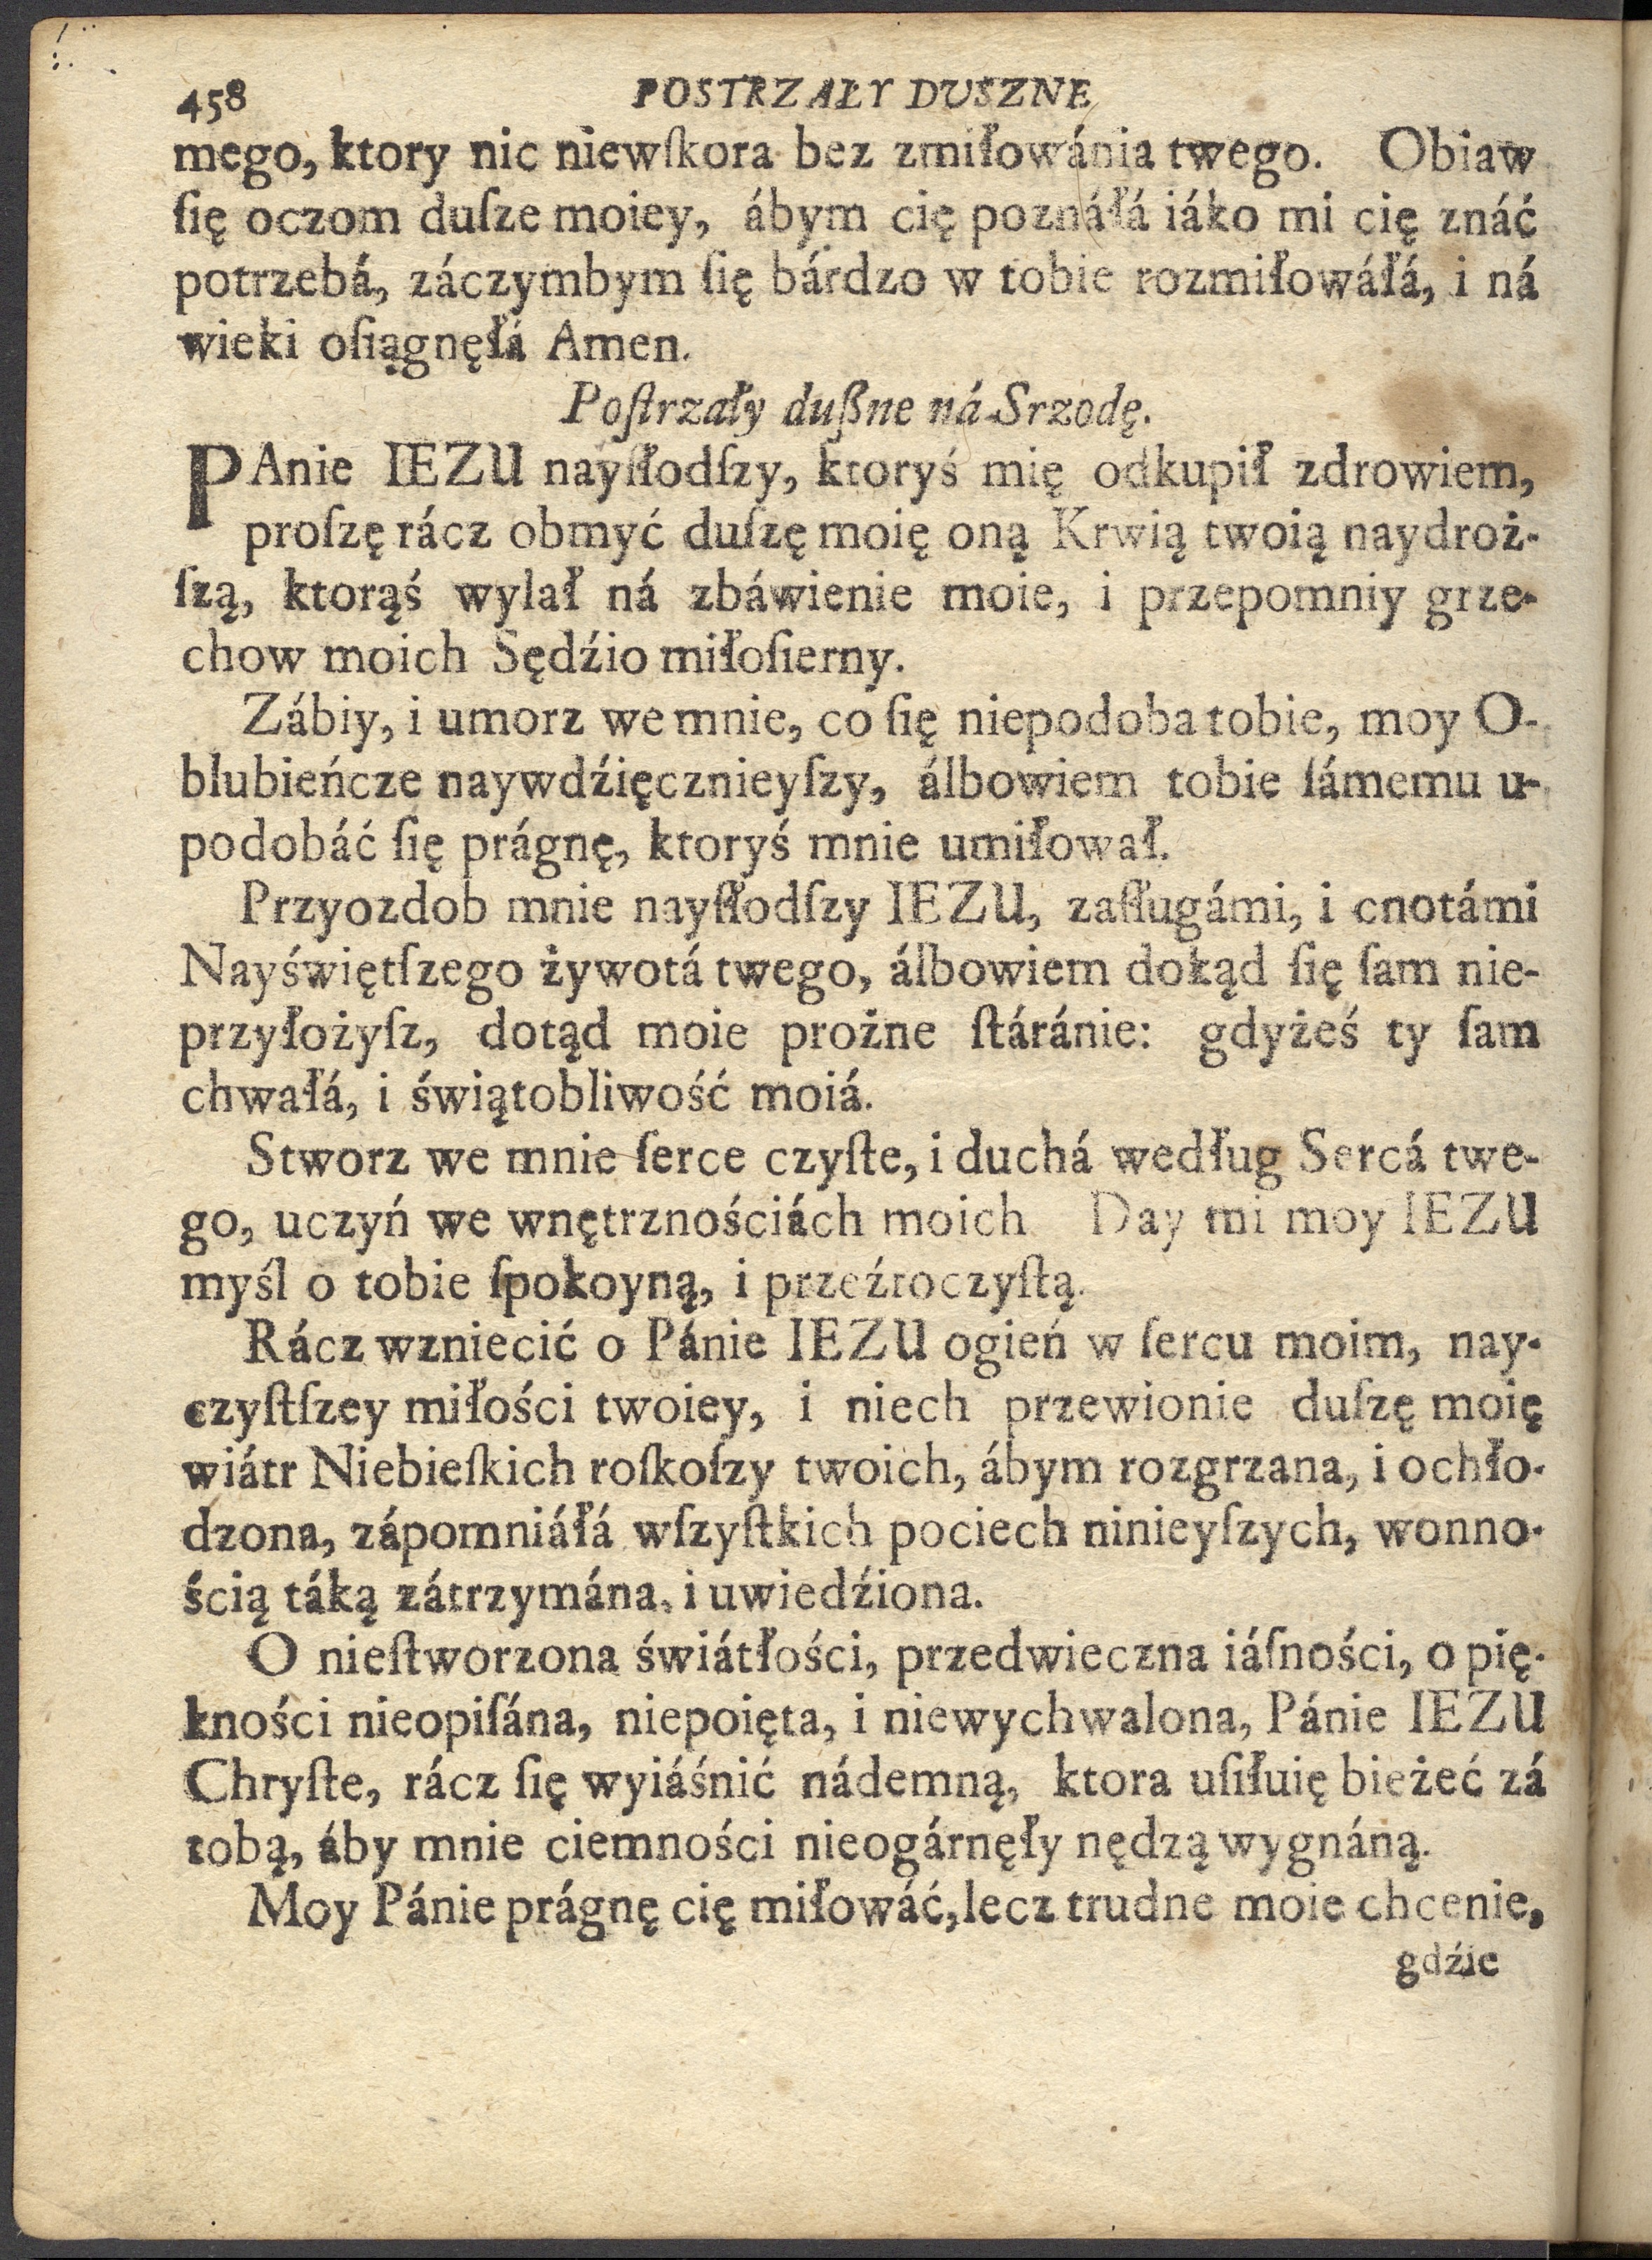 458 POSTRZAŁY DUSZNE
mego, ktory nic niewſkora bez zmiłowánia twego. Obiaw
ſię oczom duſze moiey, ábym cię poznáłá iáko mi cię znáć
potrzebá, záczymbym ſię bárdzo w tobie rozmiłowáłá, i ná
wieki oſiągnęłá Amen.
Poſtrzały dußne ná Srzodę.
PAnie IEZU nayſłodſzy, ktoryś mię odkupił zdrowiem,
proſzę rácz obmyć duſzę moię oną Krwią twoią naydroż-
ſzą, ktorąś wylał ná zbáwienie moie, i przepomniy grze-
chow moich Sędźio miłoſierny.
Zábiy, i umorz we mnie, co ſię niepodoba tobie, moy O-
blubieńcze naywdźięcznieyſzy, álbowiem tobie ſámemu u-
podobáć ſię prágnę, ktoryś mnie umiłował.
Przyozdob mnie nayſłodſzy IEZU, zaſługámi, i cnotámi
Nayświętſzego żywotá twego, álbowiem dokąd ſię ſam nie-
przyłożyſz, dotąd moie prożne ſtáránie: gdyżeś ty ſam
chwałá, i świątobliwość moiá.
Stworz we mnie ſerce czyſte, i duchá według Sercá twe-
go, uczyń we wnętrznościách moich Day mi moy IEZU
myśl o tobie ſpokoyną, i przeźroczyſtą.
Rácz wzniecić o Pánie IEZU ogień w ſercu moim, nay-
czyſtſzey miłości twoiey, i niech przewionie duſzę moię
wiátr Niebieſkich roſkoſzy twoich, ábym rozgrzana, i ochło-
dzona, zápomniáłá wſzyſtkich pociech ninieyſzych, wonno-
ścią táką zátrzymána, i uwiedźiona.
O nieſtworzona świátłości, przedwieczna iáſności, o pię-
kności nieopiſána, niepoięta, i niewychwalona, Pánie IEZU
Chryſte, rácz ſię wyiáśnić nádemną, ktora uſiłuię bieżeć zá
tobą, áby mnie ciemności nieogárnęły nędzą wygnáną.
Moy Pánie prágnę cię miłowáć, lecz trudne moie chcenie,
gdźie